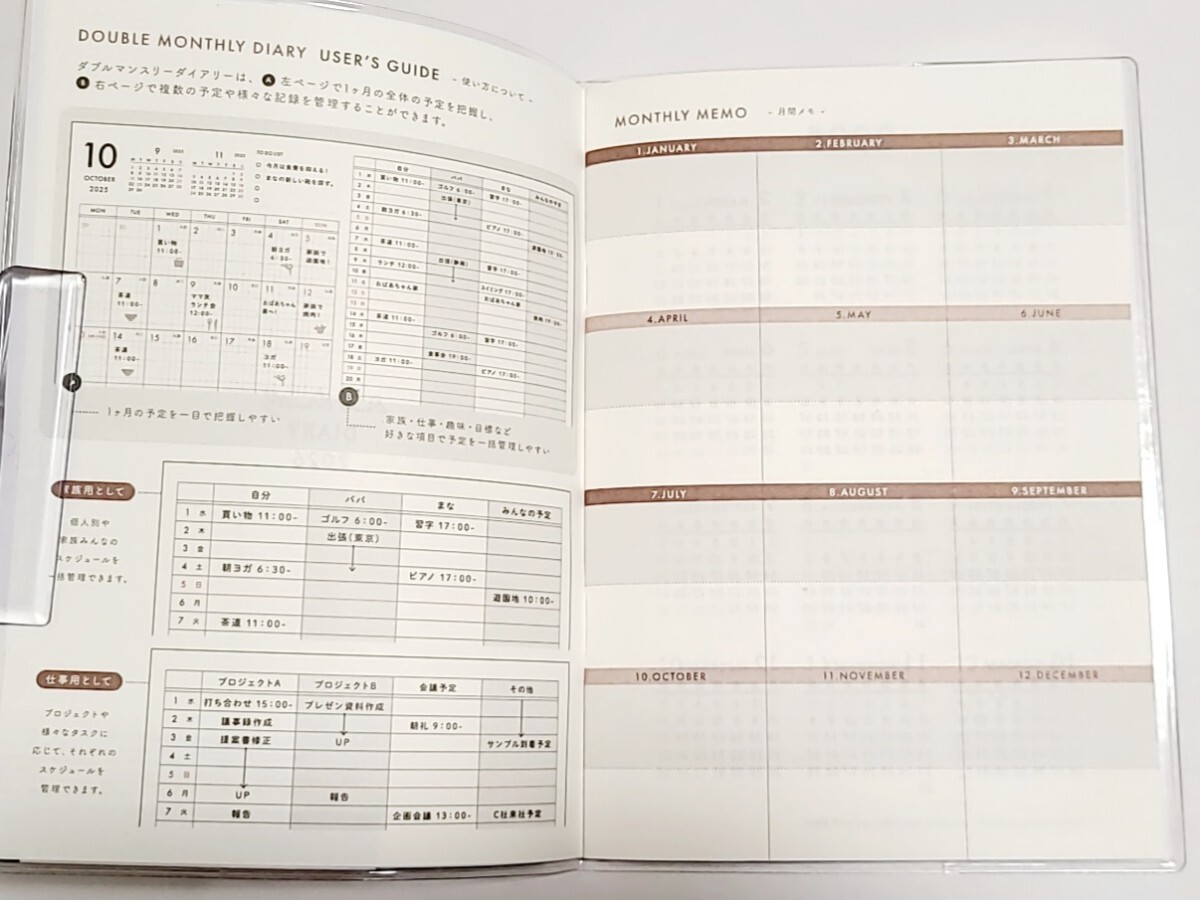 DOUBLE MONTHLY DIARY USER'S GUIDE - 使い方について -
ダブルマンスリーダイアリーは、A 左ページで1ヶ月の全体の予定を把握し、
B 右ページで複数の予定や様々な記録を管理することができます。
10
OCTOBER
2025
9
11
TO DO LIST
今月は食費を抑える!
まなの新しい靴を探す。
MON TUE WED THU FRI SAT SUN
1 2 3 4 5
買い物
11:00-
朝ヨガ
6:30-
家族で
遊園地!
7 8 9 10 11 12
茶道
11:00-
ママ友
ランチ会
12:00-
おばあちゃん
家へ!
家族で
焼肉!
14 15 16 17 18 19
茶道
11:00-
ヨガ
11:00-
自分 パパ まな みんなの予定
1 水 買い物 11:00- ゴルフ 6:00- 習字 17:00-
2 木 出張(東京)
3 金
4 土 朝ヨガ 6:30- ピアノ 17:00-
5 日 遊園地 10:00-
6 月
7 火 茶道 11:00-
8 水 出張(静岡) 習字 17:00-
9 木 ランチ 12:00-
10 金 スイミング 17:00-
11 土 おばあちゃん家 おばあちゃん家
12 日
13 月
14 火 茶道 11:00-
15 水 ゴルフ 6:00- 習字 17:00-
16 木
17 金 食事会 19:00-
18 土 ヨガ 11:00- ピアノ 17:00-
19 日
20 月
B
1ヶ月の予定を一目で把握しやすい
家族・仕事・趣味・目標など
好きな項目で予定を一括管理しやすい
家族用として
個人別や
家族みんなの
スケジュールを
一括管理できます。
自分 パパ まな みんなの予定
1 水 買い物 11:00- ゴルフ 6:00- 習字 17:00-
2 木 出張(東京)
3 金
4 土 朝ヨガ 6:30- ピアノ 17:00-
5 日 遊園地 10:00-
6 月
7 火 茶道 11:00-
仕事用として
プロジェクトや
様々なタスクに
応じて、それぞれの
スケジュールを
管理できます。
プロジェクトA プロジェクトB 会議予定 その他
1 水 打ち合わせ 15:00- プレゼン資料作成
2 木 議事録作成 朝礼 9:00-
3 金 提案書修正 UP サンプル到着予定
4 土
5 日
6 月 UP 報告
7 火 報告 企画会議 13:00- C社来社予定
MONTHLY MEMO - 月間メモ -
1.JANUARY 2.FEBRUARY 3.MARCH
4.APRIL 5.MAY 6.JUNE
7.JULY 8.AUGUST 9.SEPTEMBER
10.OCTOBER 11.NOVEMBER 12.DECEMBER